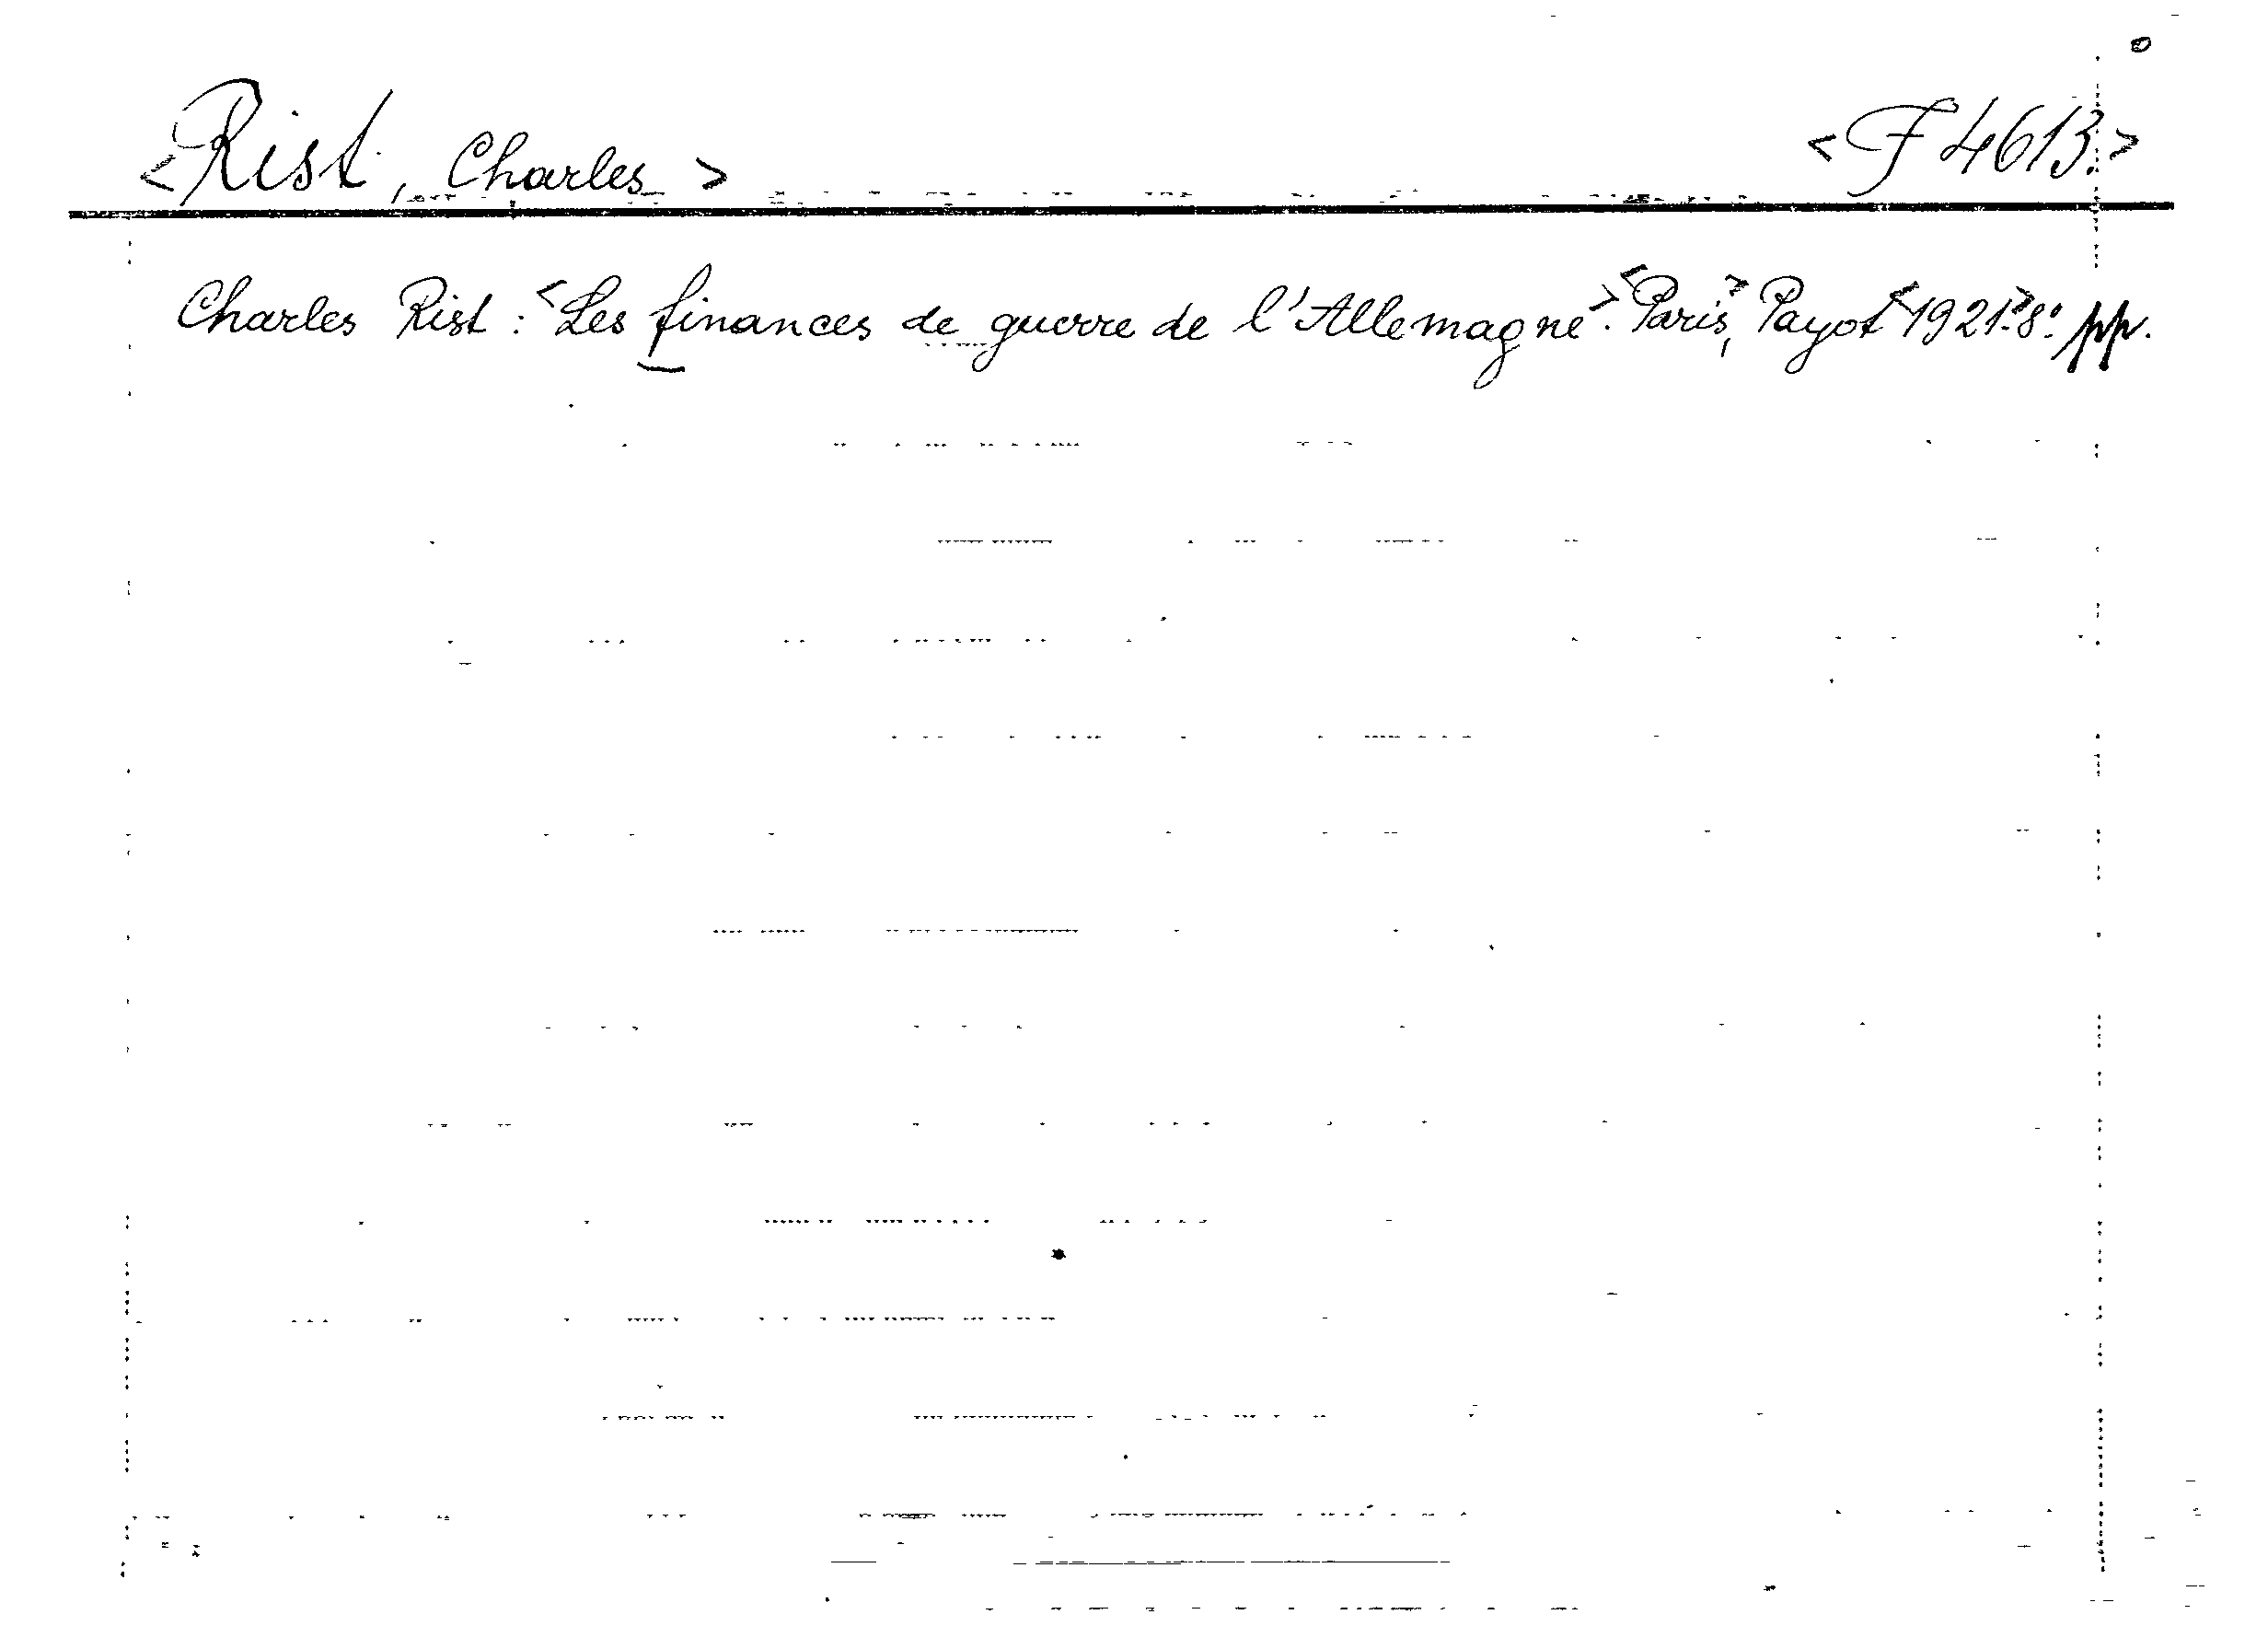 <Rist, Charles> <F 4613.>
Charles Rist: <Les finances de guerre de l'Allemagne>. <Paris>, Payot <1921>. 8°. pp.